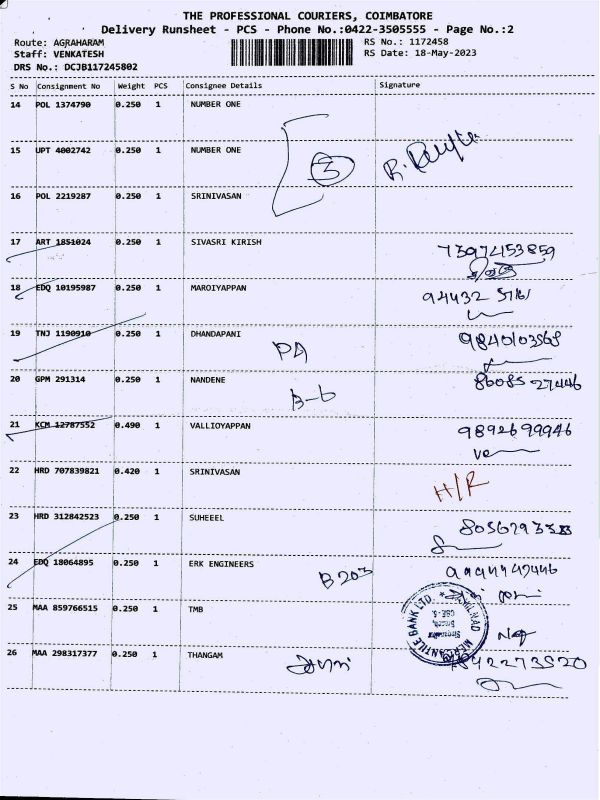 THE PROFESSIONAL COURIERS, COIMBATORE
Delivery Runsheet - PCS - Phone No.:0422-3505555 - Page No.:2
Route: AGRAHARAM RS No.: 1172458
Staff: VENKATESH RS Date: 18-May-2023
DRS No.: DCJB117245802
S No Consignment No Weight PCS Consignee Details Signature
14 POL 1374790 0.250 1 NUMBER ONE
15 UPT 4002742 0.250 1 NUMBER ONE
3
16 POL 2219287 0.250 1 SRINIVASAN
17 ART 1851024 0.250 1 SIVASRI KIRISH
73974153859
18 EDQ 10195987 0.250 1 MAROIYAPPAN
94432
19 TNJ 1190910 0.250 1 DHANDAPANI
PA 9840103568
20 GPM 291314 0.250 1 NANDENE
B-6 86085 27446
21 KCM 12787552 0.490 1 VALLIOYAPPAN
9892699946
22 HRD 707839821 0.420 1 SRINIVASAN
H/R
23 HRD 312842523 0.250 1 SUHEEEL
24 EDQ 18064895 0.250 1 ERK ENGINEERS
B203
25 MAA 859766515 0.250 1 TMB
TAMILNAD MERCANTILE BANK LTD.
26 MAA 298317377 0.250 1 THANGAM